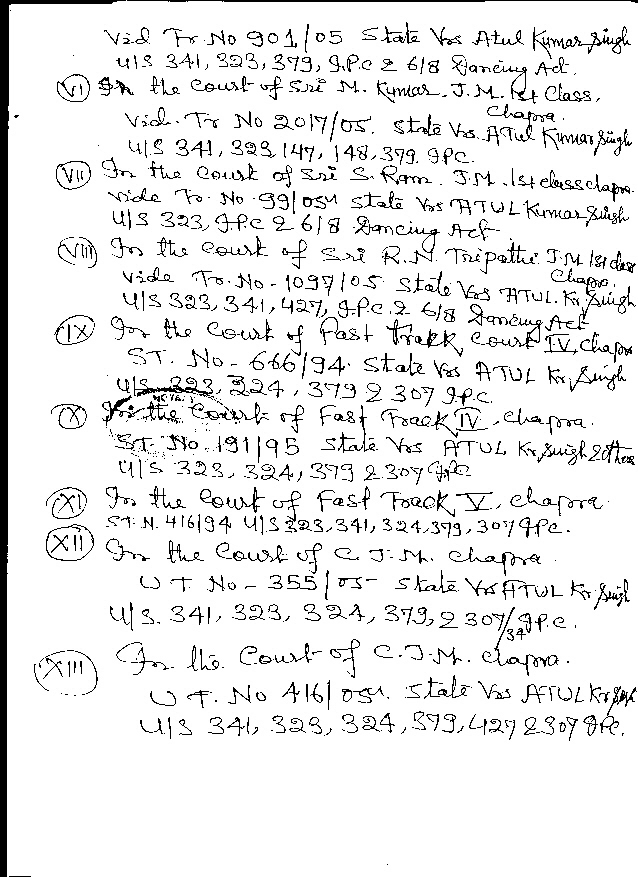 Vid Tr. No 901/05 State Vrs Atul Kumar Singh
U/S 341, 323, 379, I.P.C & 6/8 Dancing Act.
(VI) In the Court of Sri M. Kumar. J.M. Ist Class,
Chapra.
Vide. Tr No 2017/05. State Vrs. ATUL Kumar Singh
U/S 341, 323, 147, 148, 379. IPC.
(VII) In the Court of Sri S. Ram. J.M. Ist class chapra.
Vide Tr. No. 99/05 State Vrs ATUL Kumar Singh
U/S 323, I.P.C & 6/8 Dancing Act
(VIII) In the Court of Sri R.N. Tripathi J.M. Ist class
Chapra.
Vide Tr. No. - 1097/05 State Vrs ATUL. Kr. Singh
U/S 323, 341, 427, I.P.C. & 6/8 Dancing Act
(IX) In the Court of Fast Track Court IV, Chapra
ST. No - 666/94. State Vrs ATUL Kr. Singh
U/S 323, 324, 379 & 307 I.P.C.
(X) In the Court of Fast Track IV, Chapra.
ST. No. 191/95 State Vrs ATUL Kr. Singh & Others
U/S 323, 324, 379 & 307 IPC
(XI) In the Court of Fast Track V, Chapra
ST. N. 416/94 U/S 323, 341, 324, 379, 307 I.P.C.
(XII) In the Court of C.J.M. Chapra.
W T. No - 355/05 - State Vrs ATUL Kr. Singh
U/S. 341, 323, 324, 379, & 307/34 I.P.C.
(XIII) In the Court of C.J.M. Chapra.
W T. No 416/05. State Vrs ATUL Kr Singh
U/S 341, 323, 324, 379, 427 & 307 I.P.C.